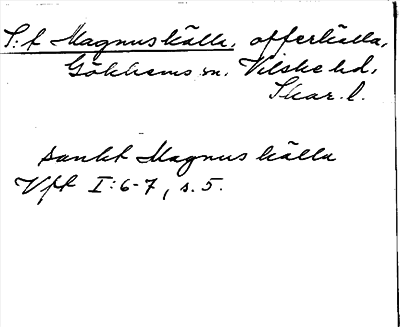 S:t Magnus källa, offerkälla,
Gökhems sn. Vilske hd.
Skar. l.
Sankt Magnus källa
Vft I:6-7, s. 5.